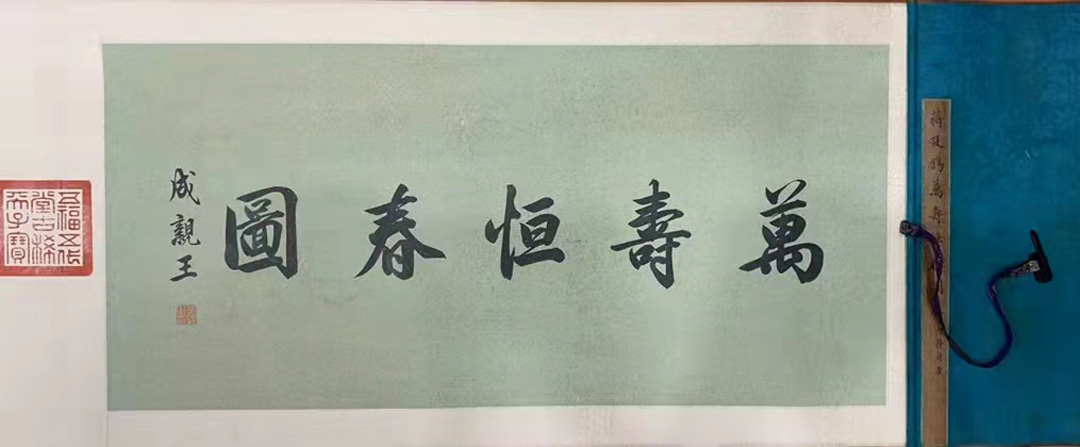 蔣廷錫萬壽
萬壽恒春圖
成親王
五福五代
堂古稀
天子寶